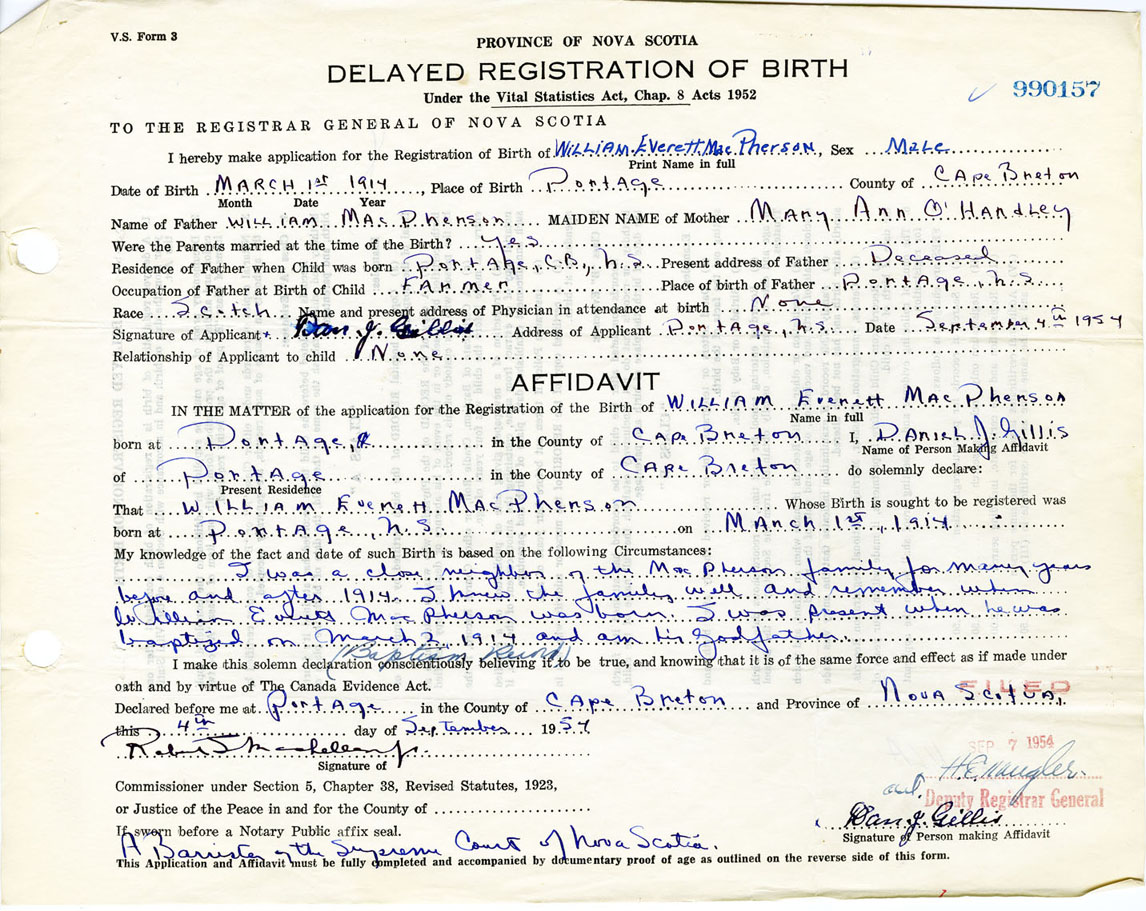 V.S. Form 3
PROVINCE OF NOVA SCOTIA
DELAYED REGISTRATION OF BIRTH
Under the Vital Statistics Act, Chap. 8 Acts 1952
990157
TO THE REGISTRAR GENERAL OF NOVA SCOTIA
I hereby make application for the Registration of Birth of WILLIAM Everett MacPherson, Sex Male
Print Name in full
Date of Birth MARCH 1st 1914, Place of Birth Portage County of CApe Breton
Month Date Year
Name of Father WILLIAM MacPherson MAIDEN NAME of Mother Mary Ann O'Handley
Were the Parents married at the time of the Birth? Yes
Residence of Father when Child was born Portage, C.B., N.S. Present address of Father Deceased
Occupation of Father at Birth of Child FArmer Place of birth of Father Portage, N.S
Race Scotch Name and present address of Physician in attendance at birth None
Signature of Applicant Dan J. Gillis Address of Applicant Portage, N.S. Date September 4th 1954
Relationship of Applicant to child None
AFFIDAVIT
IN THE MATTER of the application for the Registration of the Birth of WILLIAM Everett MacPherson
Name in full
born at Portage, in the County of CApe Breton I, Daniel J. Gillis
Name of Person Making Affidavit
of Portage in the County of CApe Breton do solemnly declare:
Present Residence
That WILLIAM Everett MacPherson Whose Birth is sought to be registered was
born at Portage, N.S. on March 1st, 1914
My knowledge of the fact and date of such Birth is based on the following Circumstances:
I was a close neighbor of the MacPherson family for many years
before and after 1914. I knew the family well and remember when
William Everett MacPherson was born. I was present when he was
baptized on March 2, 1914 and am his Godfather.
(Baptism Record)
I make this solemn declaration conscientiously believing it to be true, and knowing that it is of the same force and effect as if made under
oath and by virtue of The Canada Evidence Act.
FILED
Declared before me at Portage in the County of CApe Breton and Province of Nova Scotia,
this 4th day of September 1954
SEP 7 1954
Signature of
Commissioner under Section 5, Chapter 38, Revised Statutes, 1923,
Deputy Registrar General
or Justice of the Peace in and for the County of
Dan J. Gillis
If sworn before a Notary Public affix seal.
Signature of Person making Affidavit
A Barrister of the Supreme Court of Nova Scotia.
This Application and Affidavit must be fully completed and accompanied by documentary proof of age as outlined on the reverse side of this form.